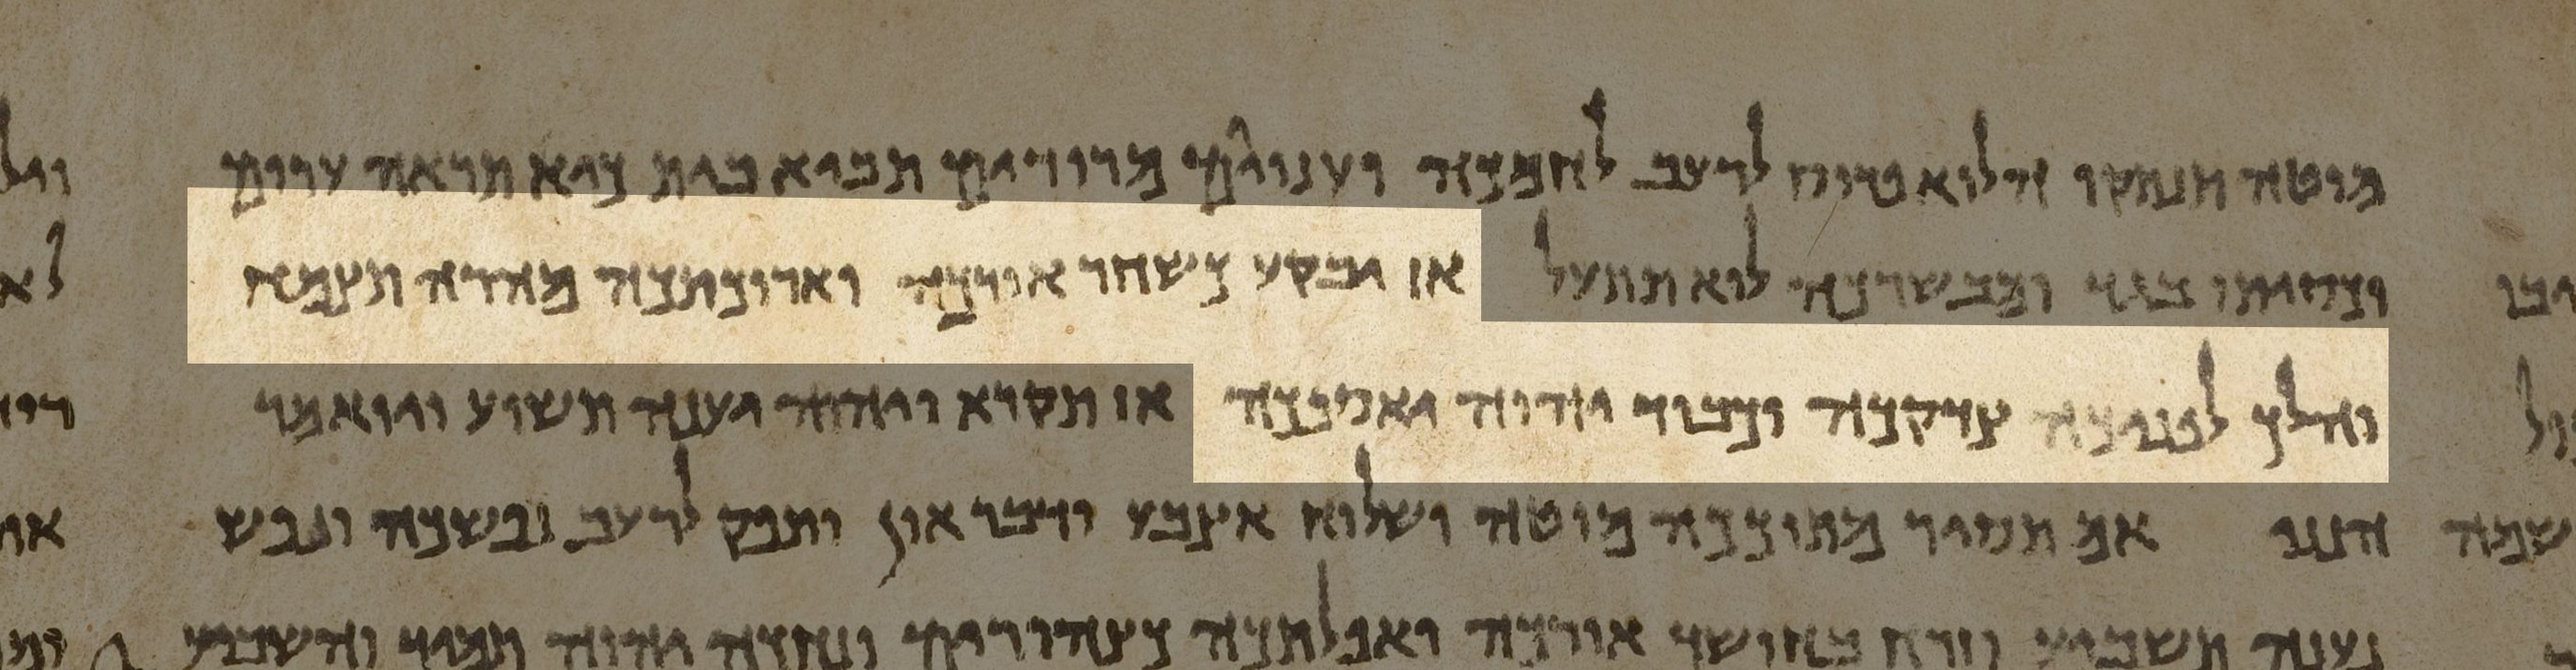 מוטה תנתקו הלוא פרוס לרעב לחמכה ועניים מרודים תביא בית כיא תראה ערום
וכסיתו בגד ומבשרכה לוא תתעל אז יבקע כשחר אורכה וארוכתכה מהרה תצמח
והלך לפניכה צדקכה וכבוד יהוה יאספכה אז תקרא ויהוה יענה תשוע ויואמר
הנני אם תסיר מתוככה מוטה ושלוח אצבע ודבר און ותפק לרעב נפשכה ונפש
נענה תשביע וזרח בחושך אורכה ואפלתכה כצהורים ונחכה יהוה תמיד והשביע